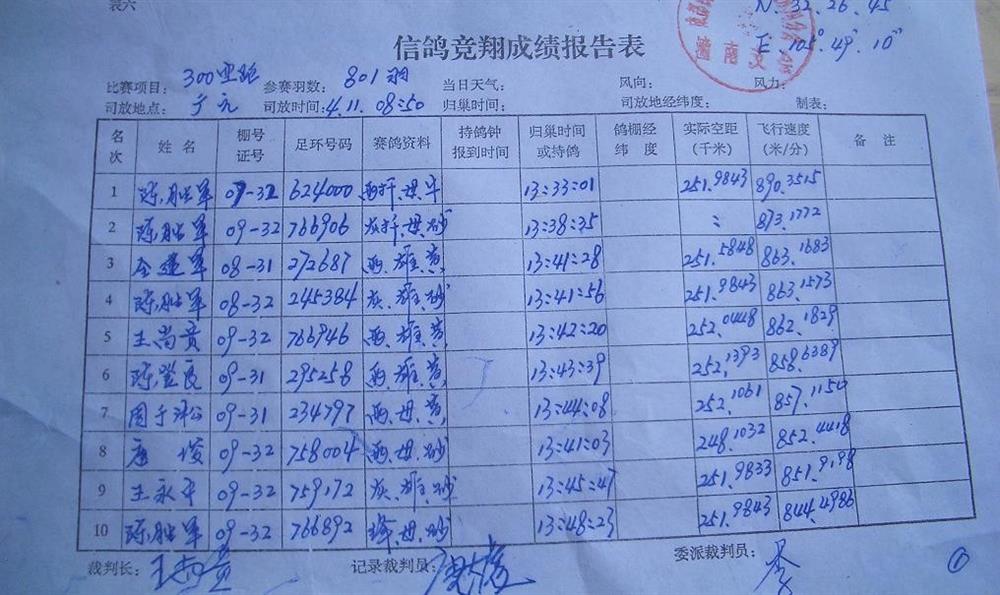 表六
N. 32. 26. 45
E. 105° 49' 10"
潼南
信鸽竞翔成绩报告表
比赛项目: 300 参赛羽数: 801羽 当日天气: 风向: 风力:
司放地点: 广元 司放时间: 4.11. 08:50 归巢时间: 司放地经纬度: 制表:
名次 姓名 棚号证号 足环号码 赛鸽资料 持鸽钟报到时间 归巢时间或持鸽 鸽棚经纬度 实际空距(千米) 飞行速度(米/分) 备注
1 陈 军 09-32 624000 13:33:01 251.9843 890.3515
2 陈 军 09-32 766906 13:38:35 : 873.1772
3 军 08-31 272687 雨.雄.黄 13:41:28 251.5848 863.1683
4 陈 军 08-32 245384 灰.雄.砂 13:41:56 251.9843 863.1573
5 王尚贵 09-32 766946 雨.雄.黄 13:42:20 252.0448 862.1829
6 陈 良 09-31 295258 雨.雄.黄 13:43:39 252.1393 858.6389
7 周于 09-31 234797 雨.母.黄 13:44:08 252.1061 857.1150
8 唐俊 09-32 758004 雨.母.砂 13:41:03 248.1032 852.4418
9 王永平 09-32 759172 灰.雄.砂 13:45:47 251.9833 851.9198
10 陈 军 09-32 766892 母.砂 13:48:23 251.9843 844.4986
裁判长: 王尚贵 记录裁判员: 委派裁判员: 李
①